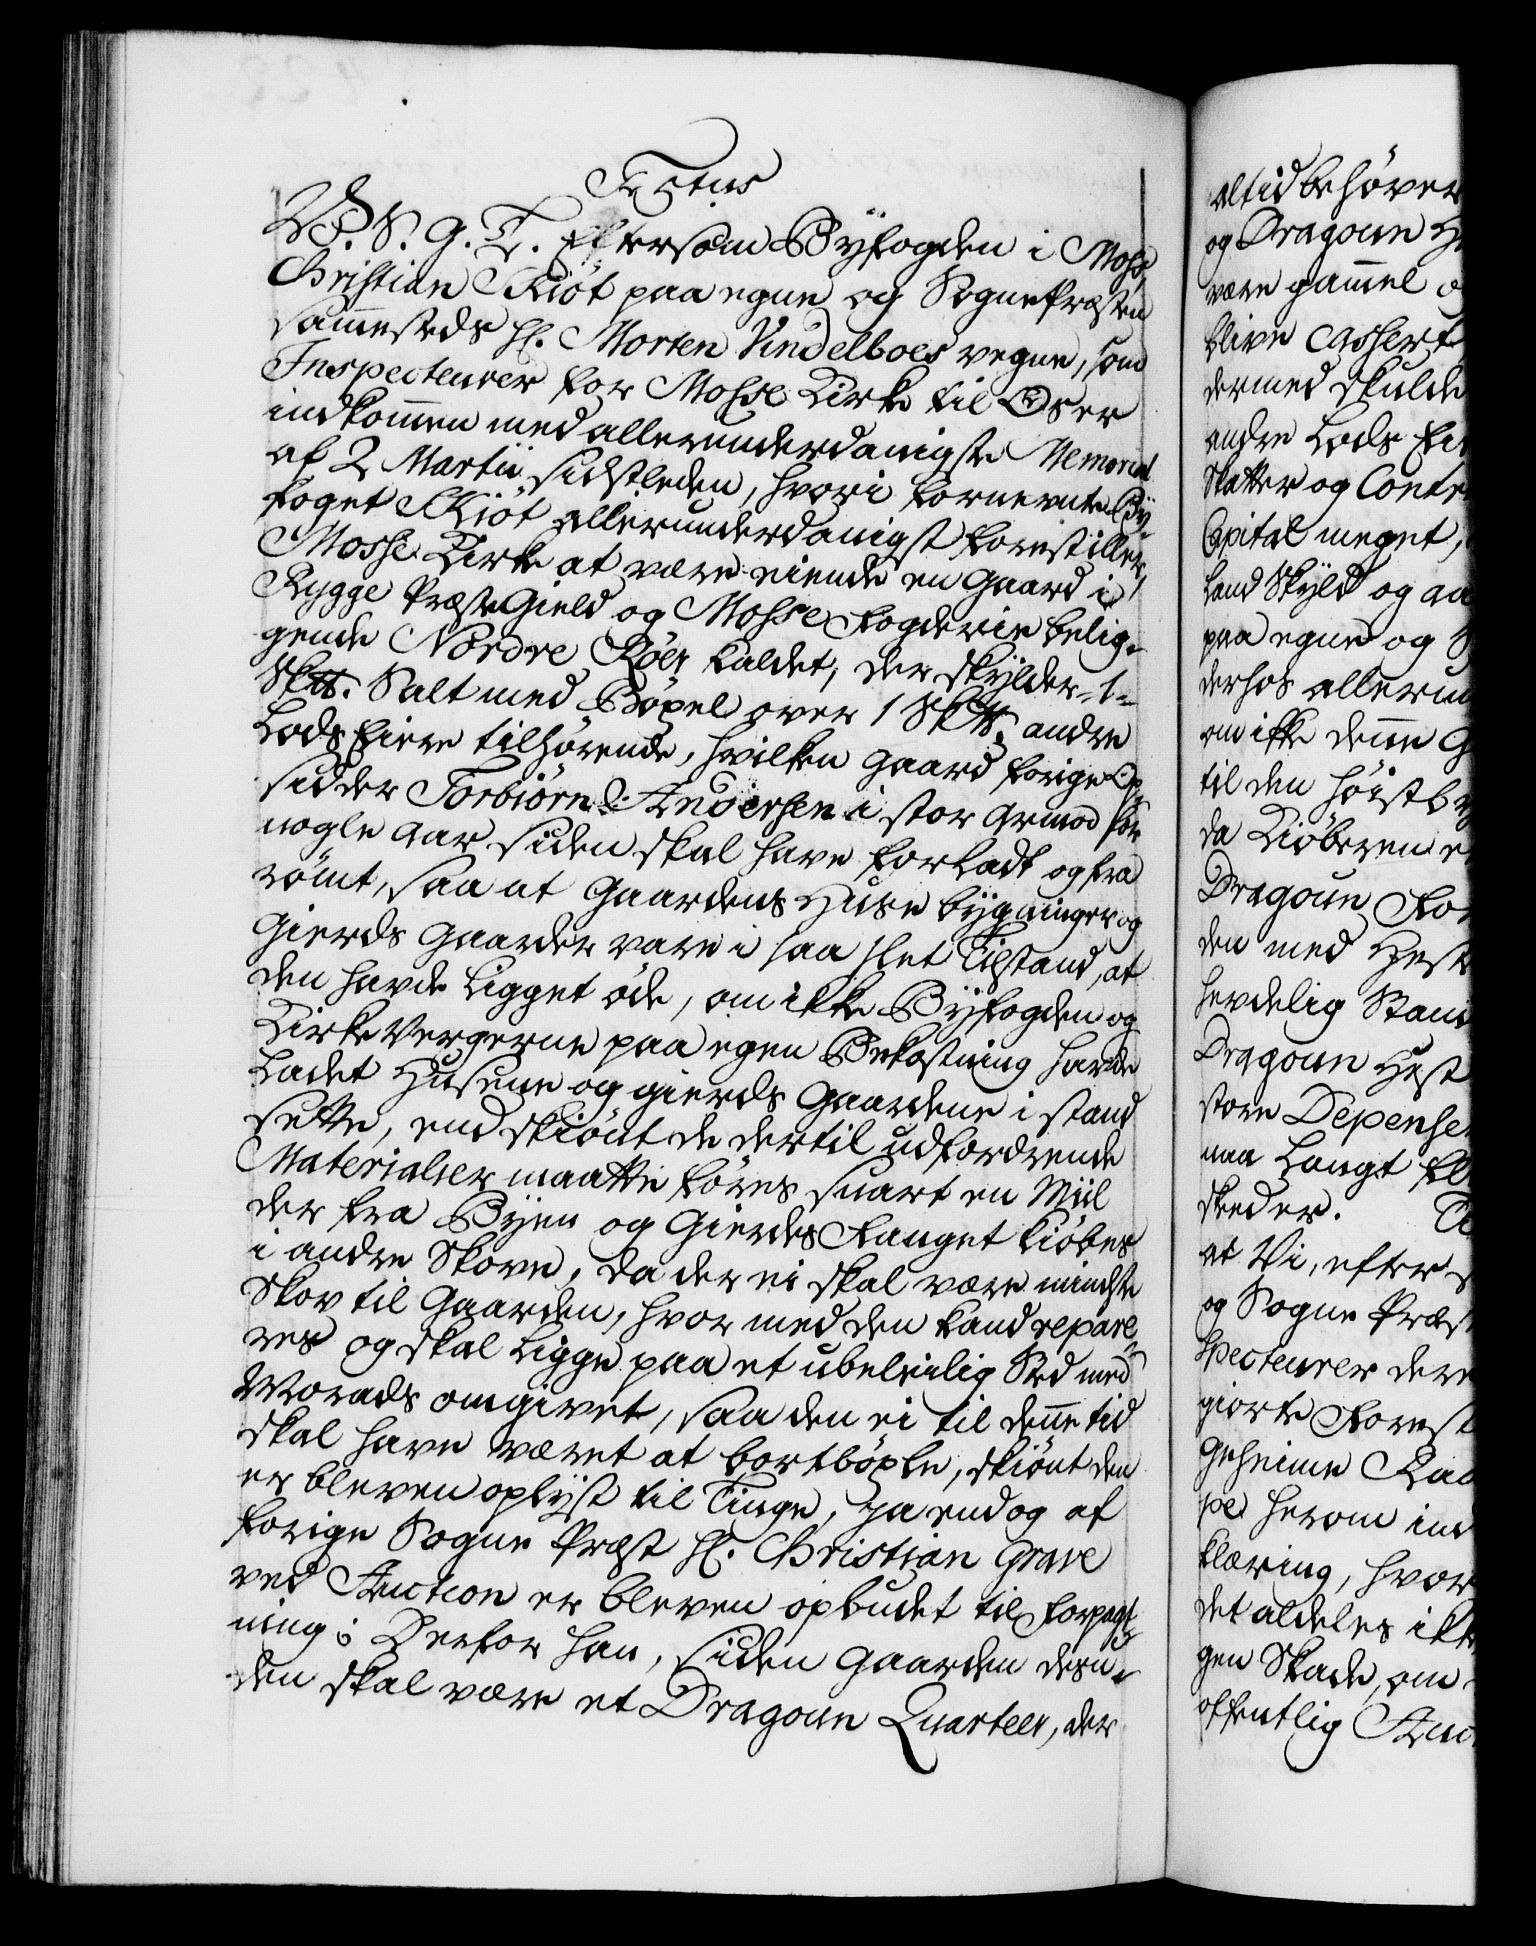 Textus
V. S. G. T. Eftersom Byefogden i Moss,
Christian Kiöt paa egne og Sogne Præsten
sammesteds Hr. Morten Vindelboes vegne, som
Inspecteurer for Mosse Kirke til Os er
indkommen med allerunderdanigste Memorial
af 2 Martii sidstleden, hvori fornevnte By
foget Kiöt allerunderdanigst forestiller,
Mosse Kirke at være eiende en Gaard i
Rygge Præste Gield og Mosse Fogderie belig-
gende Nordre Röer kaldet, der skylder 1
Sk℔. Salt med Böxel over 1 Sk℔. andre
Lods Eiere tilhørende, hvilken Gaard forige Op-
sidder Torbiörn Andersen i stor Armod for
nogle Aar siden skal have forladt og fra
römt, saa at Gaardens Huse bygninger og
Gierds Gaarder vare i saa slet Tilstand, at
den havde ligget öde, om ikke Byfogden og
Kirke Vergerne paa egen Bekostning havde
ladet Husene og gierds Gaardene i stand
sette, end skiönt de dertil udfordrende
Materialier maatte føres snart en Miil
der fra Byen og Gierdes Fanget kiöbes
i andre Skove, da der ei skal være mindste
Skov til Gaarden, hvor med den kand repare-
res og skal ligge paa et ubeleilig Sted med
Morads omgivet, saa den ei til denne tid
skal have været at bortböxle, skiönt den
er bleven oplyst til Tinge, ja endog af
forige Sogne Præst Hr. Christian Grave
ved Auction er bleven opbudet til forpagt-
ning; Derfor han, siden Gaarden desu-
den skal være et Dragoun Quarteer, der
altid behøver
og Dragoun
være gammel
blive Cassert
dermed skulde
andre Lods
Skatter og
Capital meget,
Land Skyld og
paa egne og
derhos
om ikke denne
til den høist
da Kiöberen
Dragoun
den med Hest
hevdelig Stand
Dragoun Hest
store
maa langt
sked er.
at Vi, efter
og Sogne Præst
specteurer
giorte
Geheime
herom
klæring, hvor
det aldeles ikke
gen Skade, om
offentlig